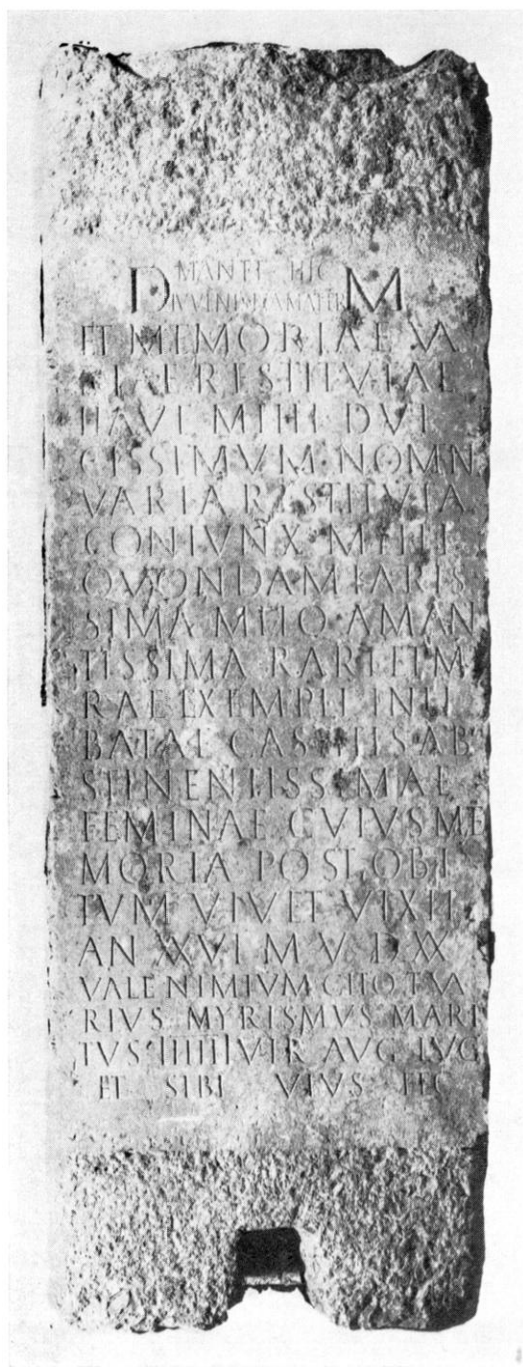 D MANTE HIC M
IVVENIS ET AMATER
ET MEMORIAE VA
RIAE RESTITVTAE
HAVE MIHI DVL
CISSIMVM NOMN
VARIA RESTITVTA
CONIVNX MIHI
QVONDAM KARIS
SIMA MEIQ AMAN
TISSIMA RARI ET M
RAE EXEMPLI INLI
BATAE CASTITIS AB
STINENTISSIMAE
FEMINAE CVIVS ME
MORIA POST OBI
TVM VIVET VIXIT
AN XXVI M V D XX
VALE NIMIVM CITO T VA
RIVS MYRISMVS MARI
TVS IIIIIIVIR AVG LVG
ET SIBI VIVS FEC